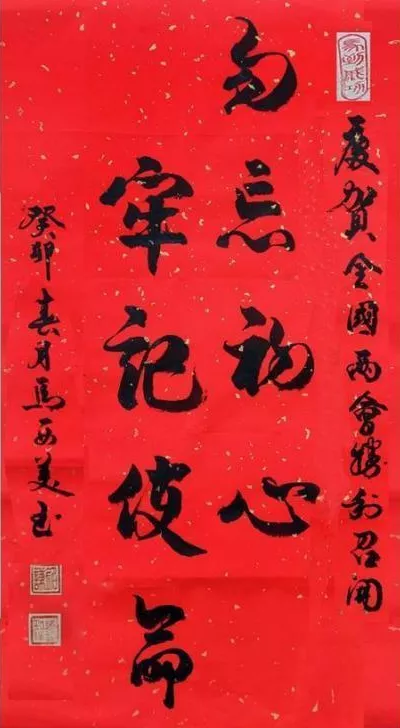 慶賀全國兩會勝利召開
勿忘初心
牢記使命
癸卯春月馬西美书